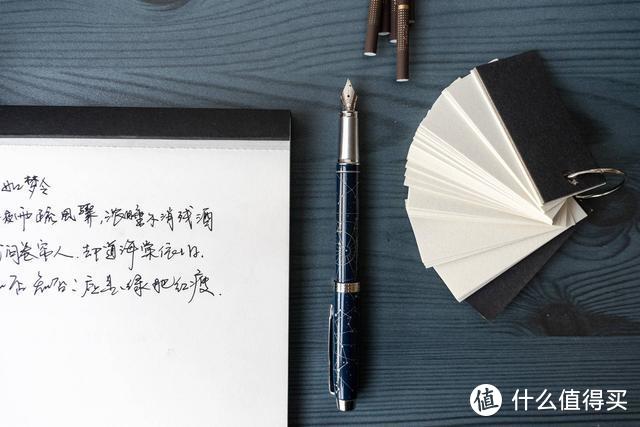 如梦令
雨疏风骤,浓睡不消残酒
问卷帘人.却道海棠依旧.
否 知否:应是绿肥红瘦.
值 什么值得买